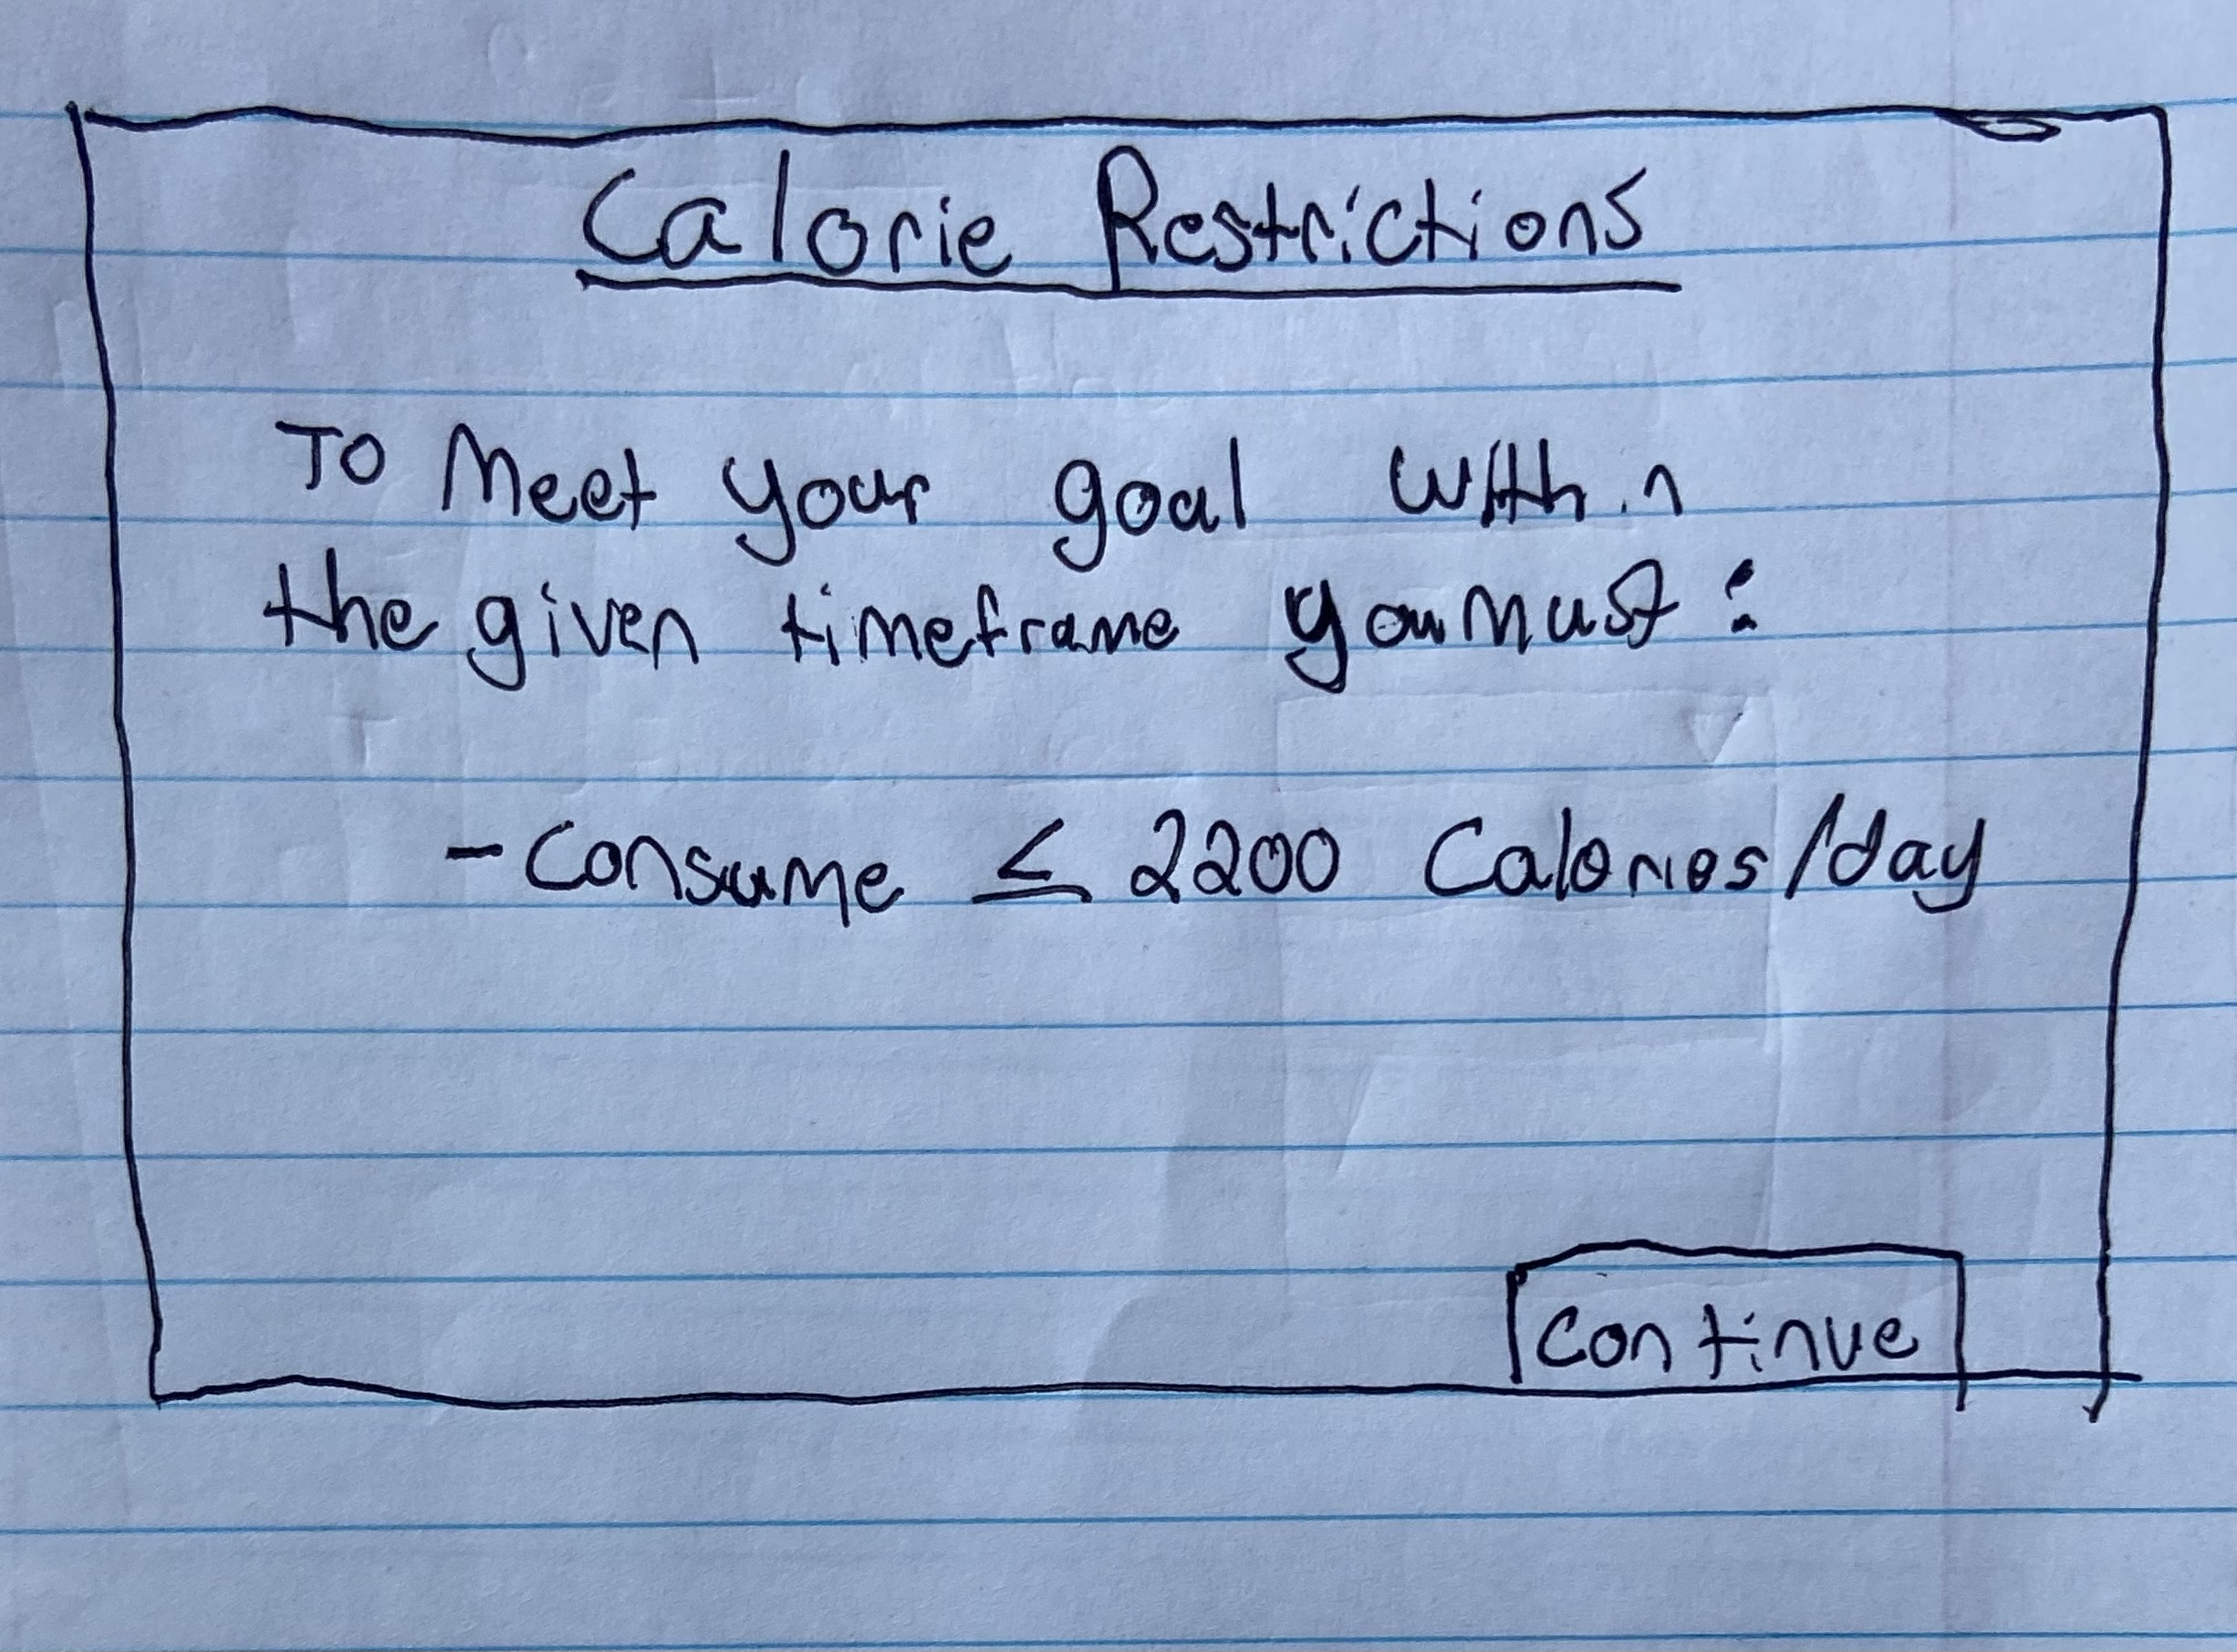 Calorie Restrictions
To Meet your goal within
the given timeframe you must:
- Consume ≤ 2200 Calories/day
Continue